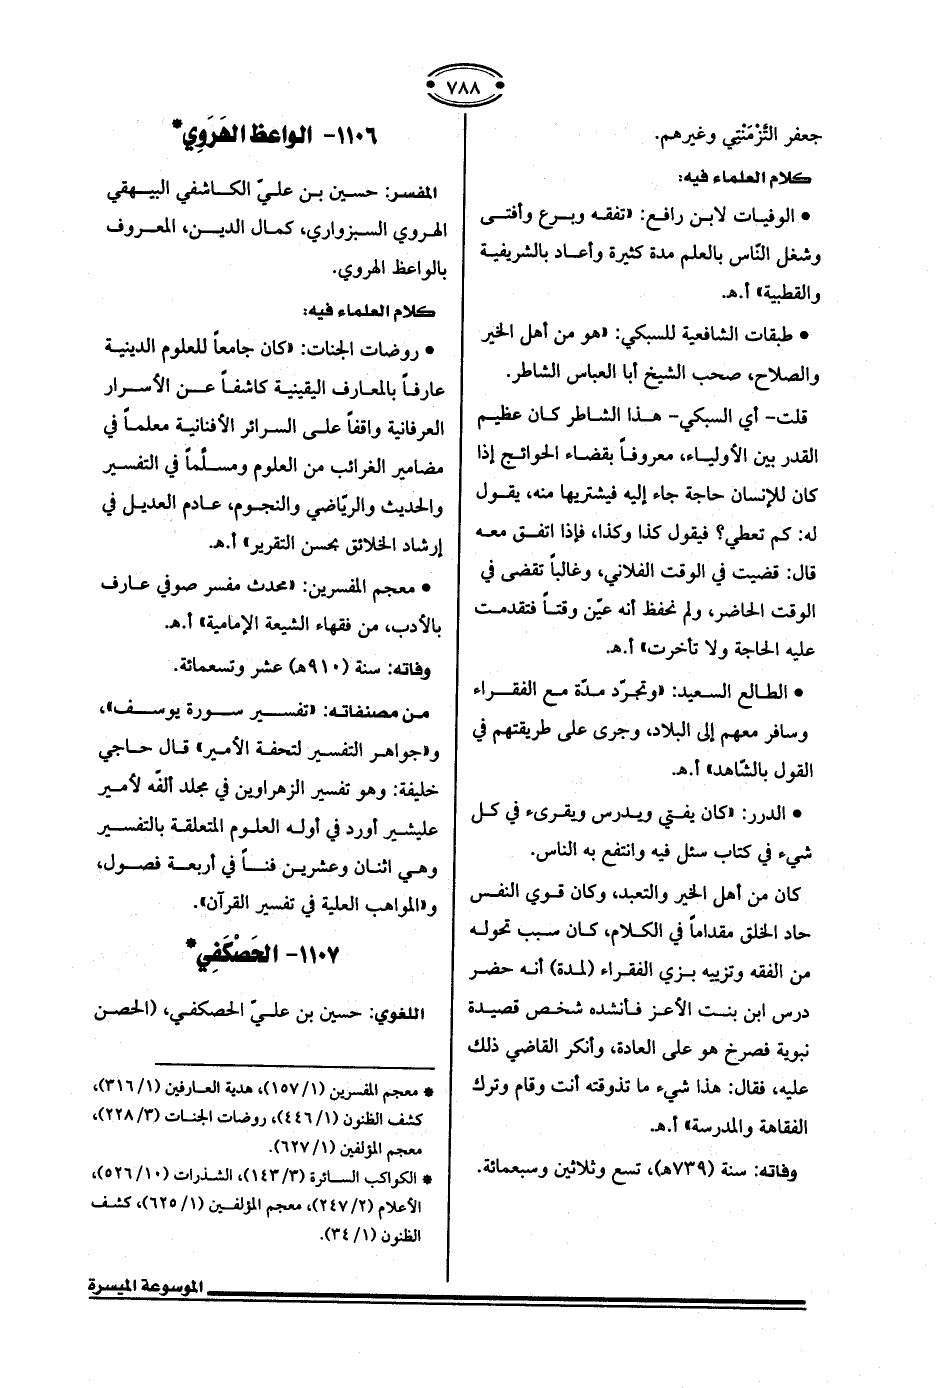 ٧٨٨
جعفر التَّزْمَنْتِي وغيرهم.
كلام العلماء فيه:
• الوفيات لابن رافع: «تفقه وبرع وأفتى
وشغل النّاس بالعلم مدة كثيرة وأعاد بالشريفية
والقطبية» أ.هـ.
• طبقات الشافعية للسبكي: «هو من أهل الخير
والصلاح، صحب الشيخ أبا العباس الشاطر.
قلت- أي السبكي- هذا الشاطر كان عظيم
القدر بين الأولياء، معروفاً بقضاء الحوائج إذا
كان للإنسان حاجة جاء إليه فيشتريها منه، يقول
له: كم تعطي؟ فيقول كذا وكذا، فإذا اتفق معه
قال: قضيت في الوقت الفلاني، وغالباً تقضى في
الوقت الحاضر، ولم نحفظ أنه عيّن وقتاً فتقدمت
عليه الحاجة ولا تأخرت» أ.هـ.
• الطالع السعيد: «وتجرّد مدّة مع الفقراء
وسافر معهم إلى البلاد، وجرى على طريقتهم في
القول بالشّاهد» أ.هـ.
• الدرر: «كان يفتي ويدرس ويقرىء في كل
شيء في كتاب سئل فيه وانتفع به الناس.
كان من أهل الخير والتعبد، وكان قوي النفس
حاد الخلق مقداماً في الكلام، كان سبب تحوله
من الفقه وتزييه بزي الفقراء (لمدة) أنه حضر
درس ابن بنت الأعز فأنشده شخص قصيدة
نبوية فصرخ هو على العادة، وأنكر القاضي ذلك
عليه، فقال: هذا شيء ما تذوقته أنت وقام وترك
الفقاهة والمدرسة» أ.هـ.
وفاته: سنة (٧٣٩هـ)، تسع وثلاثين وسبعمائة.
١١٠٦- الواعظ الهَرَوِي*
المفسر: حسين بن عليّ الكاشفي البيهقي
الهروي السبزواري، كمال الدين، المعروف
بالواعظ الهروي.
كلام العلماء فيه:
• روضات الجنات: «كان جامعاً للعلوم الدينية
عارفاً بالمعارف اليقينية كاشفاً عن الأسرار
العرفانية واقفاً على السرائر الأفنانية معلماً في
مضامير الغرائب من العلوم ومسلّماً في التفسير
والحديث والرّياضي والنجوم، عادم العديل في
إرشاد الخلائق بحسن التقرير» أ.هـ.
• معجم المفسرين: «محدث مفسر صوفي عارف
بالأدب، من فقهاء الشيعة الإمامية» أ.هـ.
وفاته: سنة (٩١٠هـ) عشر وتسعمائة.
من مصنفاته: «تفسير سورة يوسف»،
و«جواهر التفسير لتحفة الأمير» قال حاجي
خليفة: وهو تفسير الزهراوين في مجلد ألفّه لأمير
عليشير أورد في أوله العلوم المتعلقة بالتفسير
وهي اثنان وعشرين فناً في أربعة فصول،
و«المواهب العلية في تفسير القرآن».
١١٠٧- الحَصْكَفِي*
اللغوي: حسين بن عليّ الحصكفي، (الحصن
* معجم المفسرين (١/ ١٥٧)، هدية العارفين (١/ ٣١٦)،
كشف الظنون (١/ ٤٤٦)، روضات الجنات (٣/ ٢٢٨)،
معجم المؤلفين (١/ ٦٢٧).
* الكواكب السائرة (٣/ ١٤٣)، الشذرات (١٠/ ٥٢٦)،
الأعلام (٢/ ٢٤٧)، معجم المؤلفين (١/ ٦٢٥)، كشف
الظنون (١/ ٣٤).
الموسوعة الميسرة